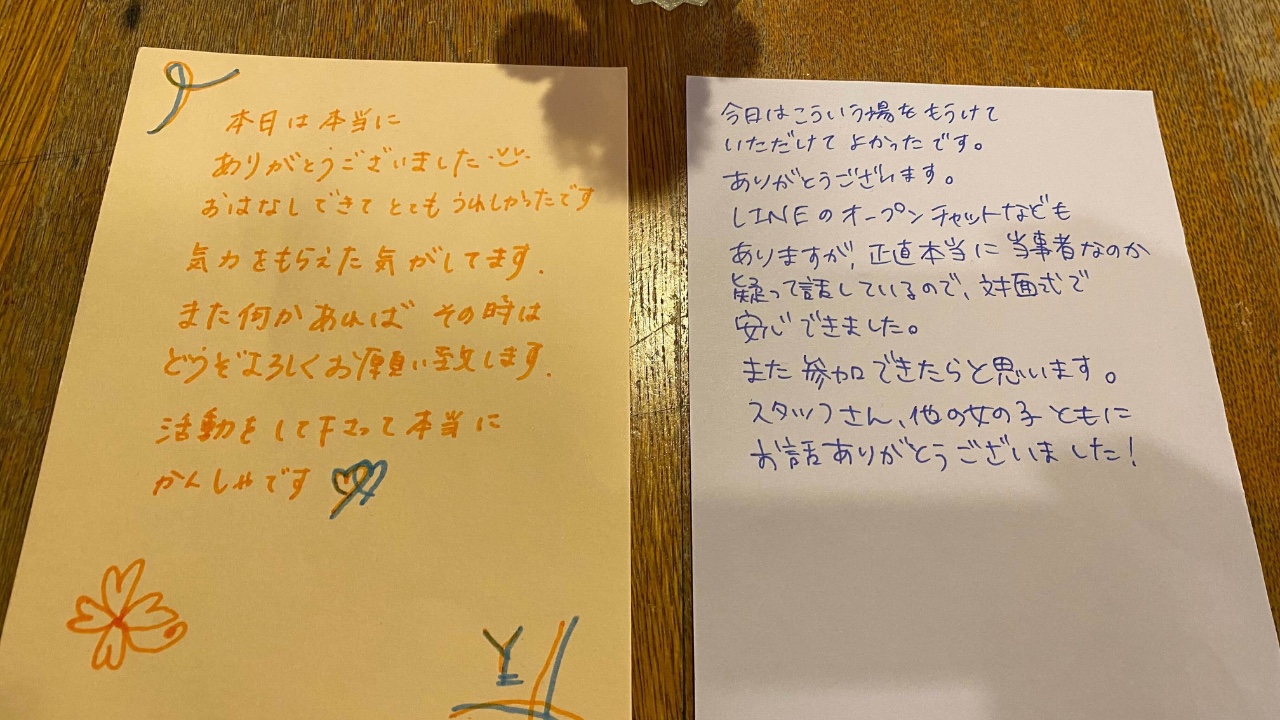 本日は本当に
ありがとうございました
おはなしできて とても うれしかったです
気力をもらえた気がしてます.
また何かあれば その時は
どうぞよろしくお願い致します.
活動をして下さって本当に
かんしゃです
Y
今日はこういう場を もうけて
いただけて よかったです。
ありがとうございます。
LINEのオープンチャットなども
ありますが、正直本当に当事者なのか
疑って話しているので、対面式で
安心できました。
また参加できたらと思います。
スタッフさん、他の女の子ともに
お話ありがとうございました!